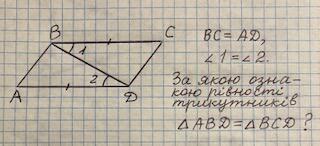 B
C
1
2
A
D
BC = AD,
∠1 = ∠2.
За якою озна-
кою рівності
трикутників
△ABD = △BCD ?